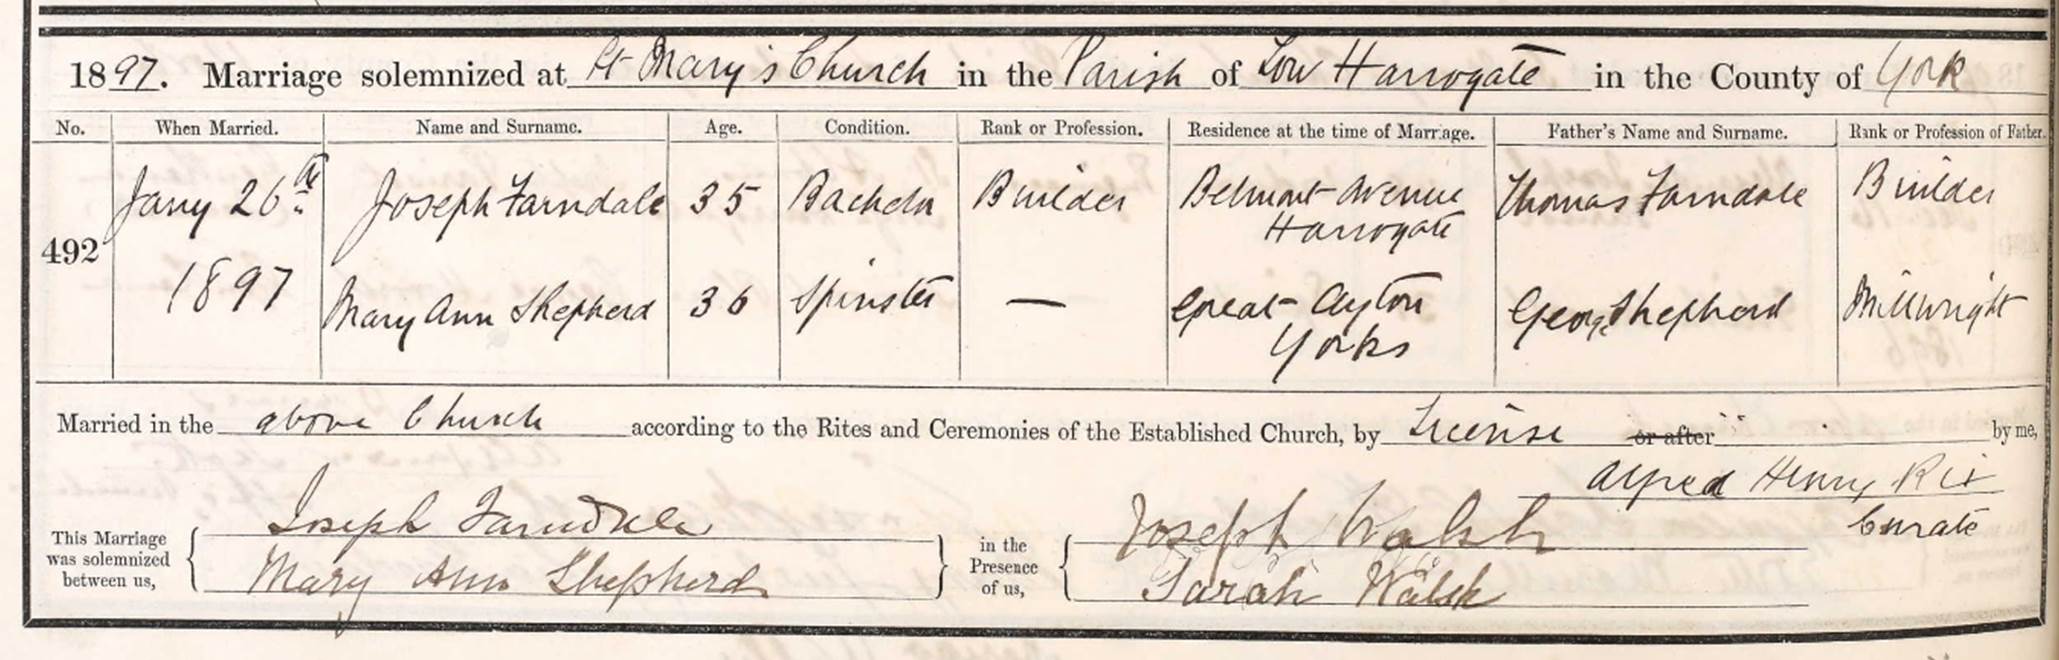 1897. Marriage solemnized at St Mary's Church in the Parish of Low Harrogate in the County of York
No. When Married. Name and Surname. Age. Condition. Rank or Profession. Residence at the time of Marriage. Father's Name and Surname. Rank or Profession of Father.
492
Jany 26th Joseph Farndale 35 Bachelor Builder Belmont Avenue Thomas Farndale Builder
Harrogate
1897 Mary Ann Shepherd 36 Spinster — Great Ayton George Shepherd Millwright
Yorks
Married in the above Church according to the Rites and Ceremonies of the Established Church, by License or after by me,
Alfred Henry Rix
Curate
This Marriage was solemnized between us, Joseph Farndale in the Presence of us, Joseph Walsh
Mary Ann Shepherd Sarah Walsh